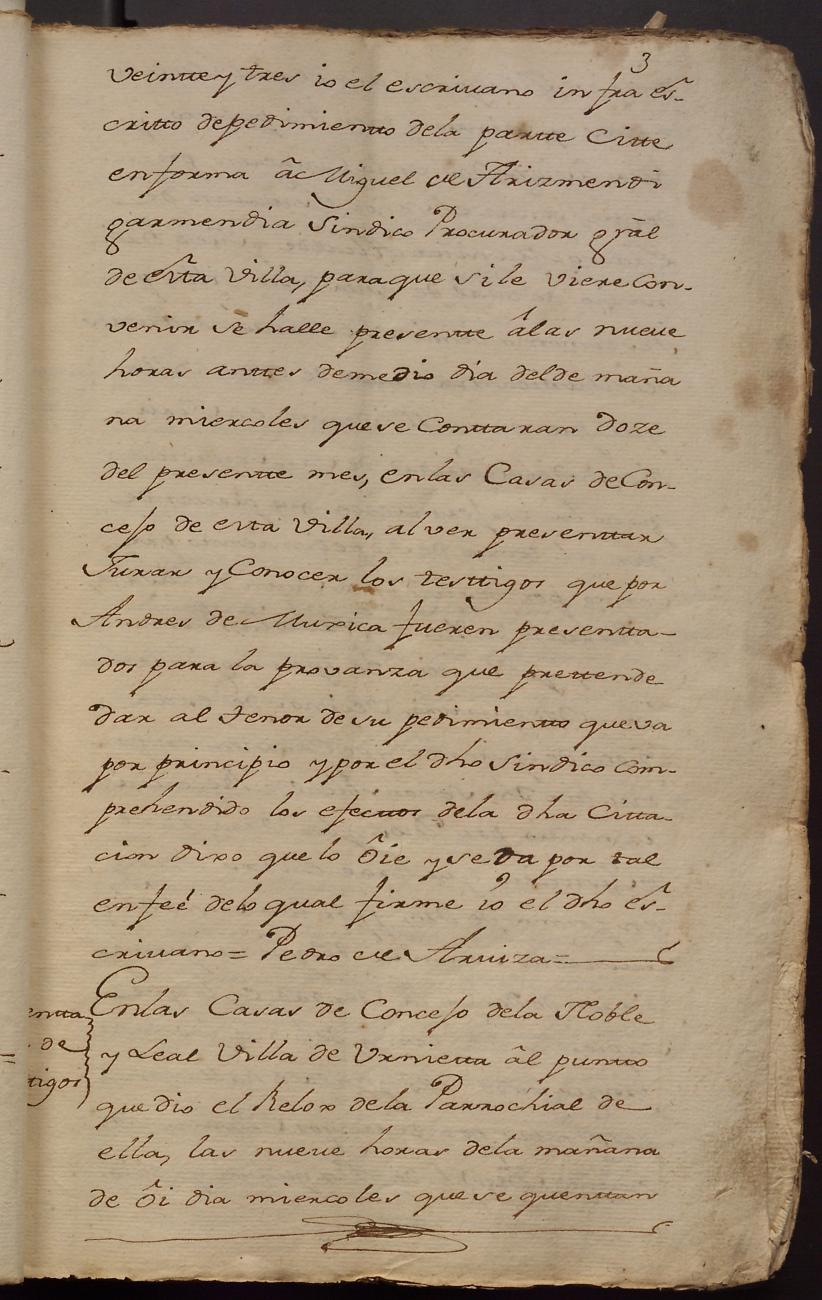 3
veintte y tres io el escrivano infra es-
critto de pedimientto de la partte Citte
en forma â Miguel de Arizmendi
garmendia Sindico Procurador gral
de esta Villa, para que si le viere Con-
venir se halle presentte â las nueve
horas anttes de medio dia del de maña
na miercoles que se Conttaran doze
del presentte mes, en las Casas de Con-
cejo de esta Villa, al ver presenttar
Jurar y Conocer los testtigos que por
Andres de Muxica fueren presentta-
dos para la provanza que prettende
dar al tenor de su pedimientto que va
por principio y por el dho Sindico Com-
prehendido los efecttos de la dha Citta-
cion dixo que lo ôie y se da por tal
en feé de lo qual firme io el dho es-
crivano = Pedro de Arviza =
entta
de
tigos
En las Casas de Concejo de la Noble
y Leal Villa de Vrnietta âl puntto
que dio el Relox de la Parrochial de
ella, las nueve horas de la mañana
de ôi dia miercoles que se quenttan